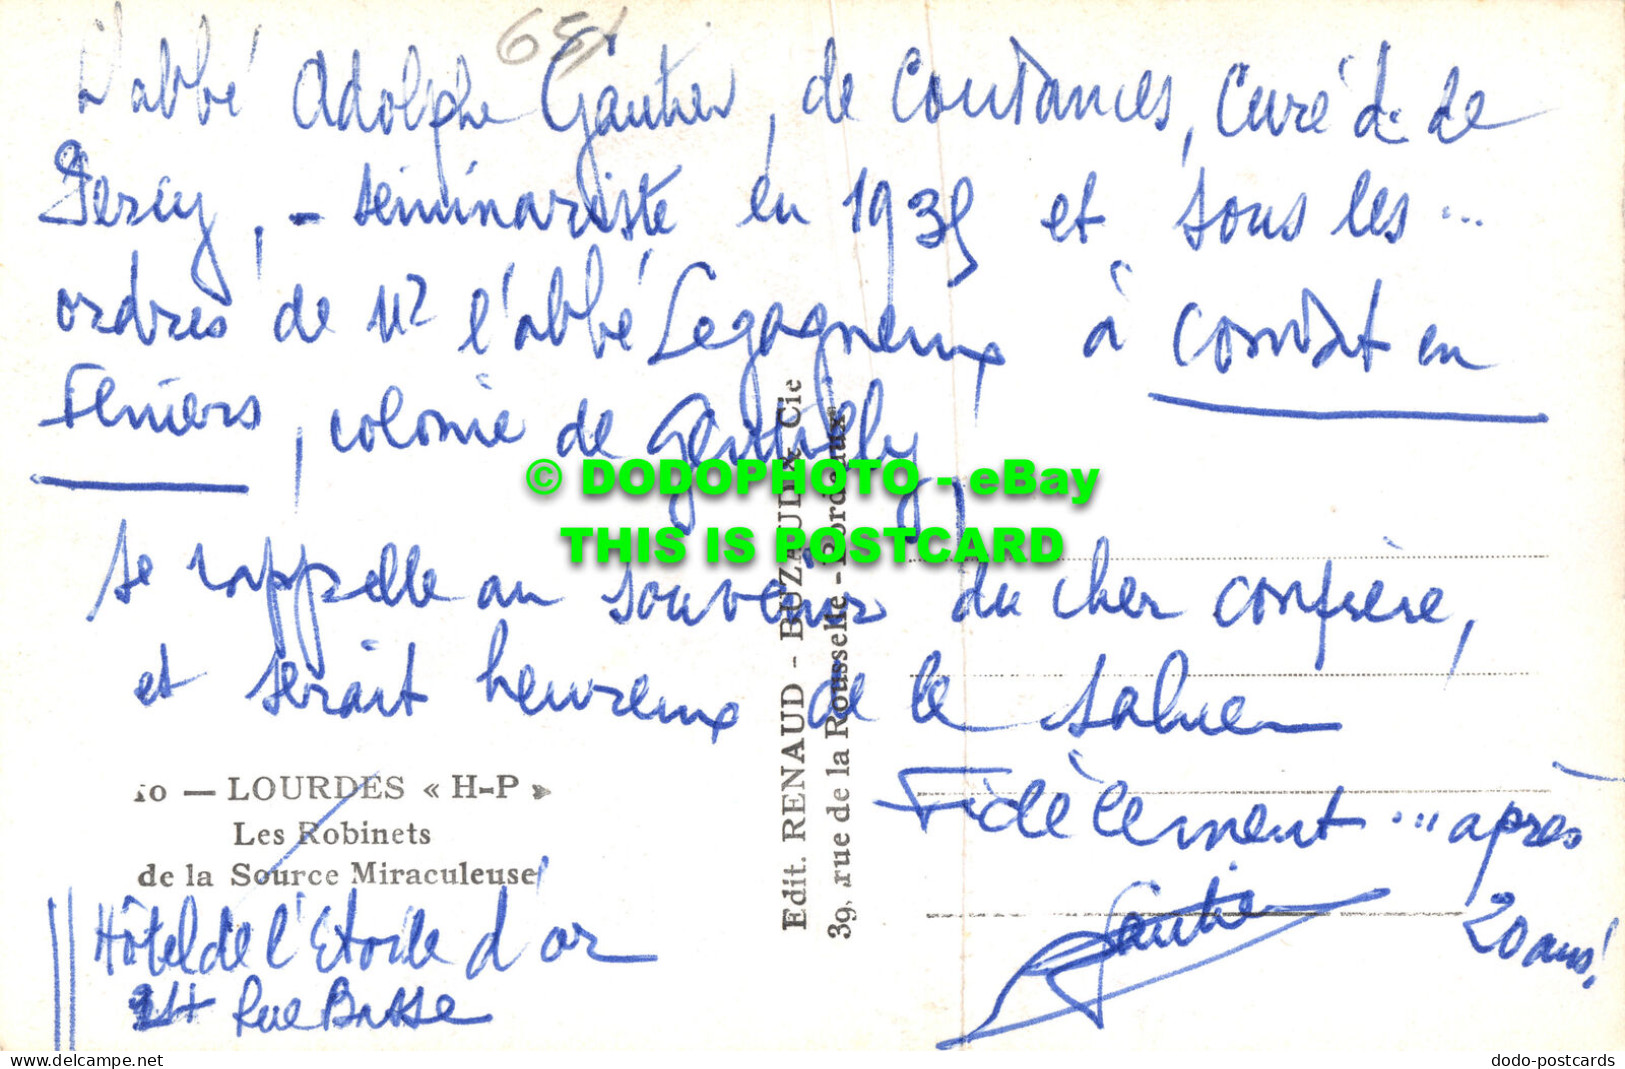 65/
L'abbé Adolphe Gautier, de Coutances, Curé d. de
Percy, - séminariste en 1935 et sous les ...
ordres de Mr l'abbé Legagneux à Condat en
Feniers, colonie de Gentilly
se rappelle au souvenir du cher confrère,
et serait heureux de le saluer
Fidèlement ... après
20 ans!
Gautier
10 — LOURDES « H-P »
Les Robinets
de la Source Miraculeuse
Hôtel de l'Etoile d'or
24 Rue Basse
Edit. RENAUD - BUZAUD & Cie
39, rue de la Rousselle - Bordeaux
© DODOPHOTO - eBay
THIS IS POSTCARD
www.delcampe.net
dodo-postcards